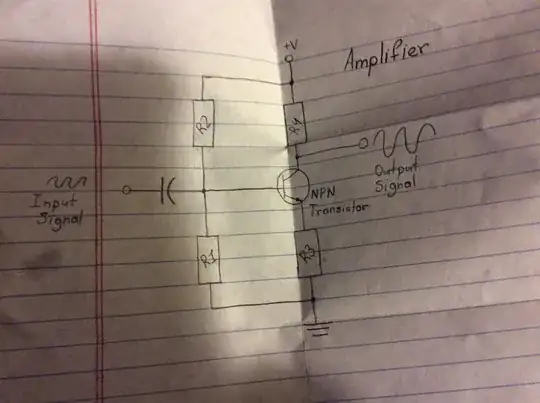 +V
Amplifier
R2
R4
Input
Signal
Output
Signal
NPN
Transistor
R1
R3